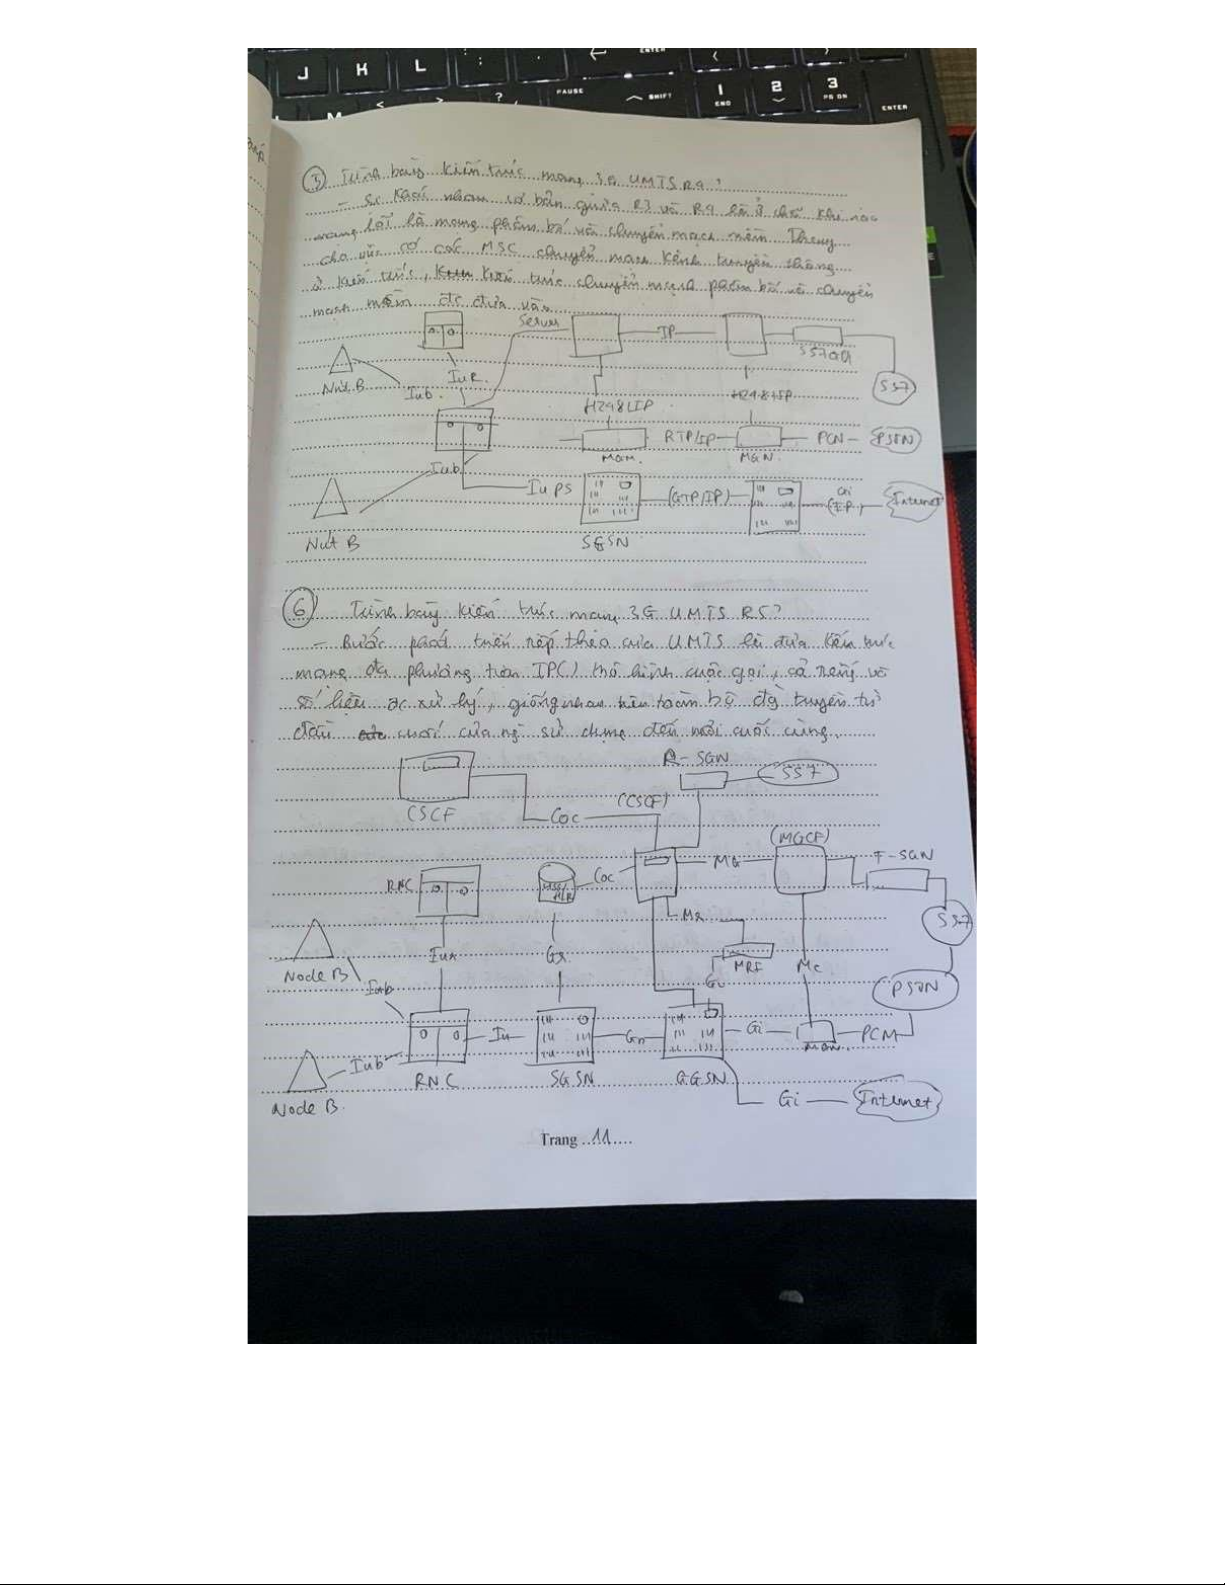 J K L : ENTER
PAUSE SHIFT 1 END 2 3 PG DN ENTER
M < > ?
Trình bày kiến trúc mạng 3G UMTS R4?
- Sự khác nhau cơ bản giữa R3 và R4 là ở chỗ khi này
mạng lõi là mạng phân bố và chuyển mạch mềm. Thay
cho việc có các MSC chuyển mạch kênh truyền thông
ở kiến trúc, kiến trúc chuyển mạch phân bố và chuyển
mạch mềm đc đưa vào
Server IP SS7GW
Nút B Iub IuR SS7
H248/IP H248+IP
RTP/IP PCN PSTN
MGW. MGN.
Iub
Iu PS (GTP/IP) Gi (IP) Internet
Nút B SGSN
6 Trình bày kiến trúc mạng 3G UMTS R5?
- Bước phát triển tiếp theo của UMTS là đưa kiến trúc
mạng đa phương tiện IP() mô hình cuộc gọi, cả tiếng và
số liệu đc xử lý, giống nhau trên toàn bộ đg truyền từ
đầu cuối của ng sử dụng đến nơi cuối cùng.
R-SGW SS7
CSCF Coc (CSCF)
(MGCF) T-SGW
RNC Coc MG
HLR SS7
Node B Iur Gr MRF Mc
Iub Gi PSTN
Iu Gn Gi PCM
Iub RNC SGSN GGSN
Node B. Gi Internet
Trang ..11....